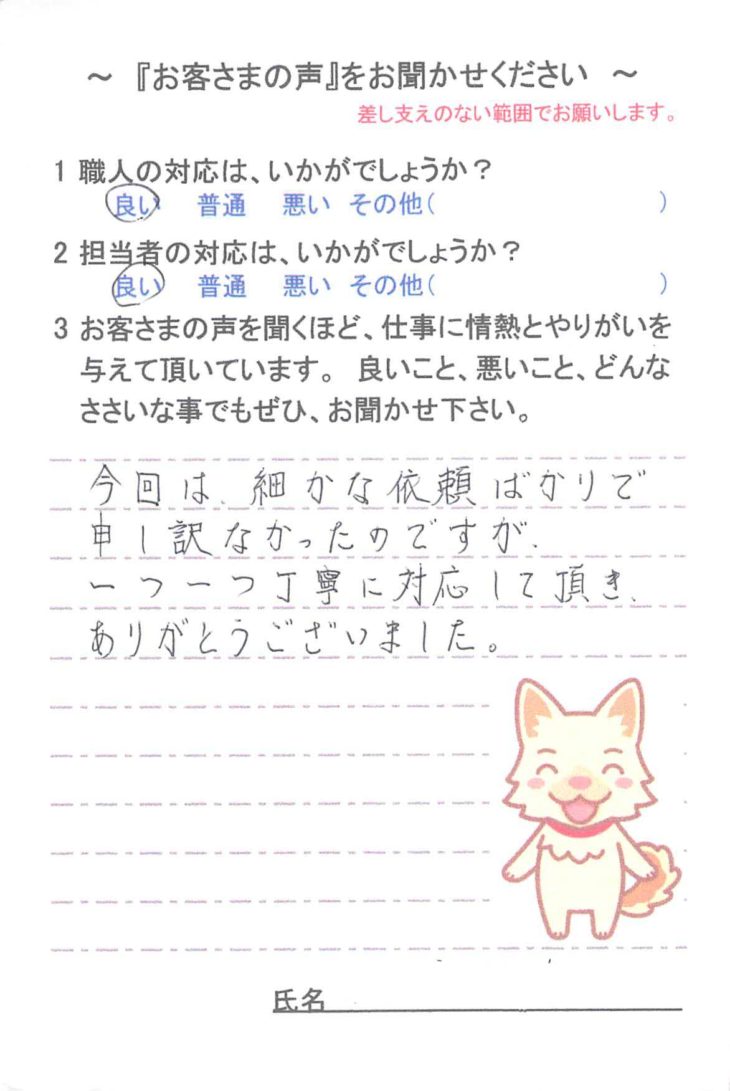 ～ 『お客さまの声』をお聞かせください ～
差し支えのない範囲でお願いします。
1 職人の対応は、いかがでしょうか？
良い 普通 悪い その他( )
2 担当者の対応は、いかがでしょうか？
良い 普通 悪い その他( )
3 お客さまの声を聞くほど、仕事に情熱とやりがいを
与えて頂いています。 良いこと、悪いこと、どんな
ささいな事でもぜひ、お聞かせ下さい。
今回は、細かな依頼ばかりで
申し訳なかったのですが、
一つ一つ丁寧に対応して頂き、
ありがとうございました。
氏名